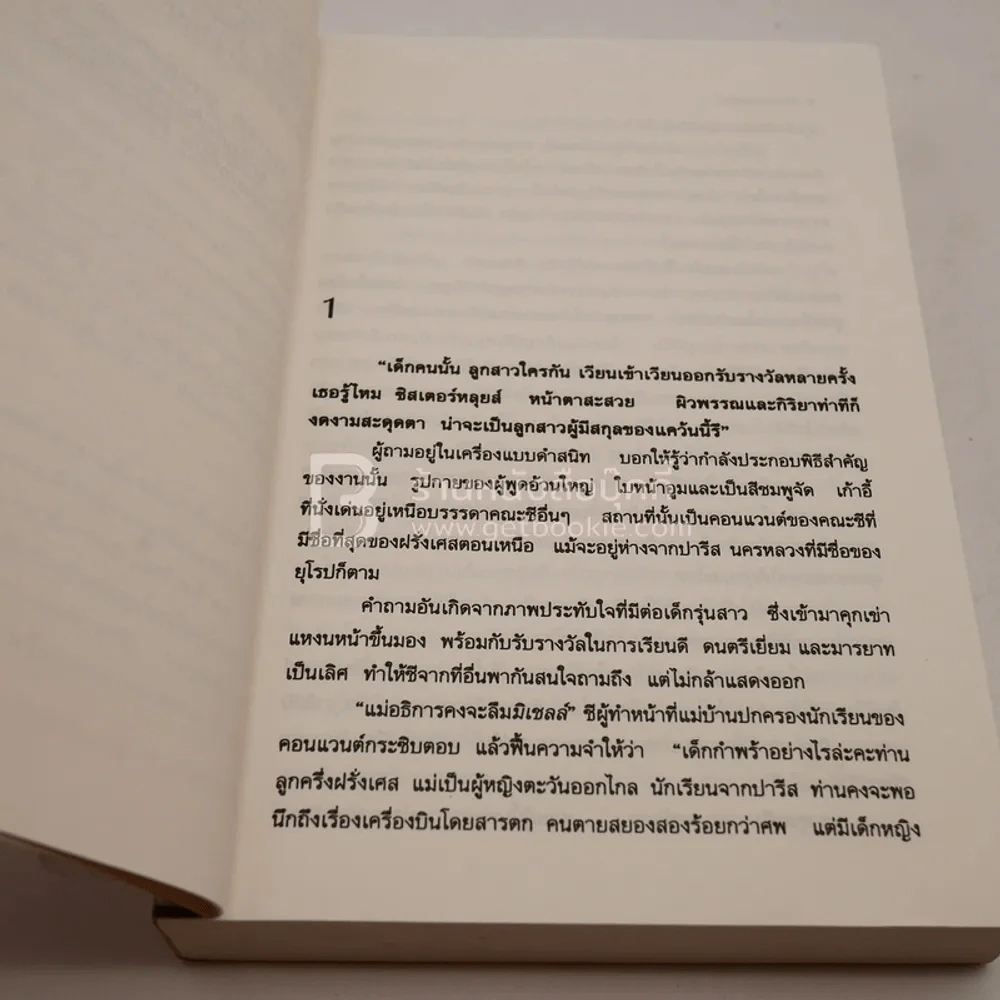 1
“เด็กคนนั้น ลูกสาวใครกัน เวียนเข้าเวียนออกรับรางวัลหลายครั้ง
เธอรู้ไหม ซิสเตอร์หลุยส์ หน้าตาสะสวย ผิวพรรณและกิริยาท่าทีก็
งดงามสะดุดตา น่าจะเป็นลูกสาวผู้มีสกุลของแคว้นนี้รึ”
ผู้ถามอยู่ในเครื่องแบบดำสนิท บอกให้รู้ว่ากำลังประกอบพิธีสำคัญ
ของงานนั้น รูปกายของผู้พูดอ้วนใหญ่ ใบหน้าอูมและเป็นสีชมพูจัด เก้าอี้
ที่นั่งเด่นอยู่เหนือบรรรดาคณะชีอื่นๆ สถานที่นั้นเป็นคอนแวนต์ของคณะชีที่
มีชื่อที่สุดของฝรั่งเศสตอนเหนือ แม้จะอยู่ห่างจากปารีส นครหลวงที่มีชื่อของ
ยุโรปก็ตาม
คำถามอันเกิดจากภาพประทับใจที่มีต่อเด็กรุ่นสาว ซึ่งเข้ามาคุกเข่า
แหงนหน้าขึ้นมอง พร้อมกับรับรางวัลในการเรียนดี ดนตรีเยี่ยม และมารยาท
เป็นเลิศ ทำให้ชีจากที่อื่นพากันสนใจถามถึง แต่ไม่กล้าแสดงออก
“แม่อธิการคงจะลืมมิเชลล์” ชีผู้ทำหน้าที่แม่บ้านปกครองนักเรียนของ
คอนแวนต์กระซิบตอบ แล้วฟื้นความจำให้ว่า “เด็กกำพร้าอย่างไรล่ะคะท่าน
ลูกครึ่งฝรั่งเศส แม่เป็นผู้หญิงตะวันออกไกล นักเรียนจากปารีส ท่านคงจะพอ
นึกถึงเรื่องเครื่องบินโดยสารตก คนตายสยองสองร้อยกว่าศพ แต่มีเด็กหญิง
ร้านหนังสือบุ๊คกี้
www.getbookie.com